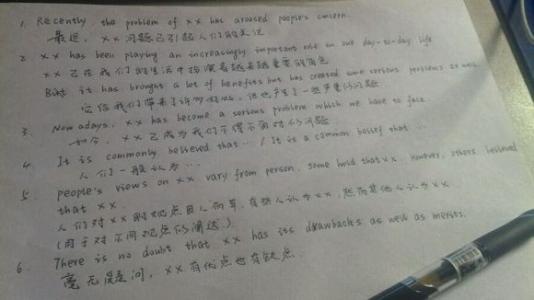 1. Recently the problem of xx has aroused people's concern.
最近, xx 问题已引起人们的关注
2. xx has been playing an increasingly important role in our day-to-day life
xx已在我们的生活中扮演着越来越重要的角色
But it has brought a lot of benefits but has created some serious problems as well.
它给我们带来了许多好处,但也产生了一些严重的问题
3. Nowadays, xx has become a serious problem which we have to face.
如今, xx 已成为我们不得不面对的问题
4. It is commonly believed that … / It is a common belief that …
人们一般认为…
5. people's views on xx vary from person, some hold that xx. However, others believed
that xx.
人们对xx的观点因人而异,有些人认为xx,然而其他人认为xx.
(用于对不同观点的阐述)
6. There is no doubt that xx has its drawbacks as well as merits.
毫无疑问, xx有优点也有缺点.